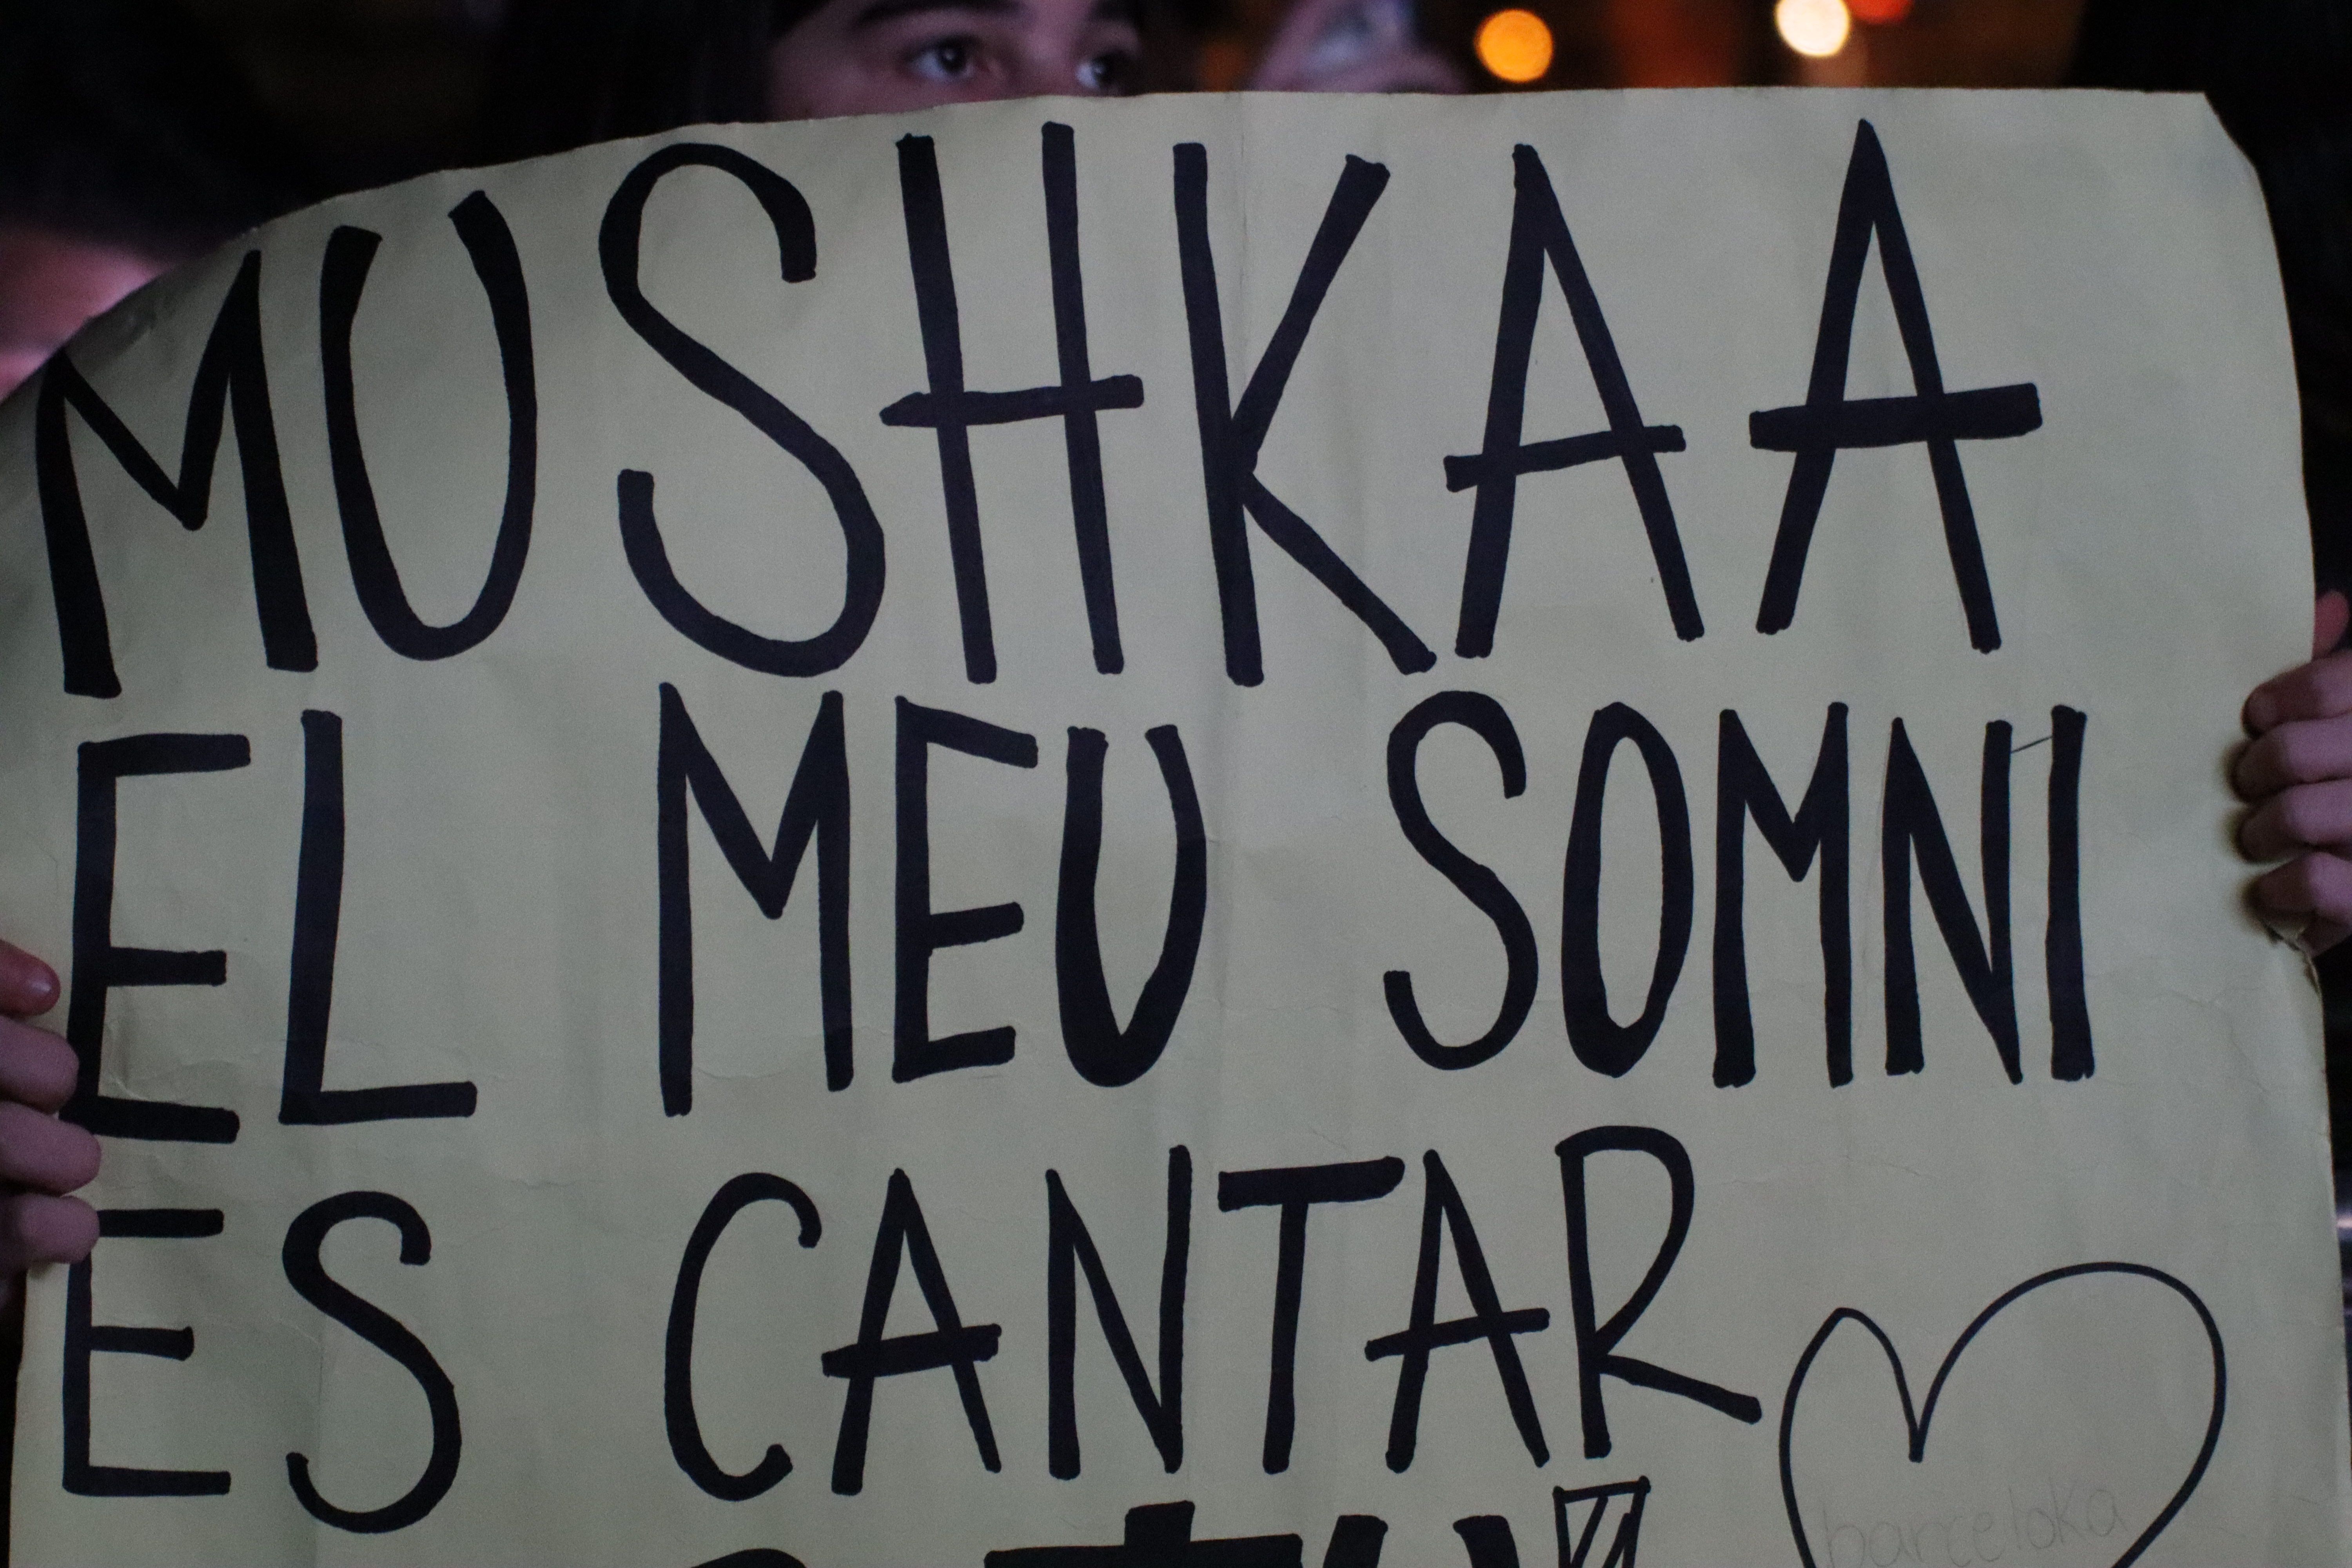 MUSHKAA
EL MEU SOMNI
ES CANTAR
barceloka